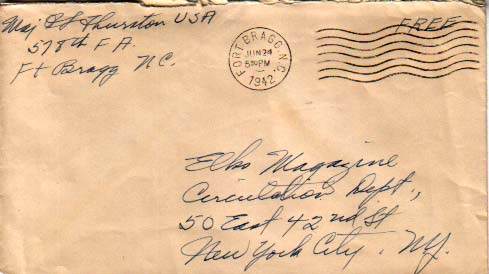 Maj C L Thurston USA
578th F A.
Ft Bragg NC.
FORT BRAGG N.C.
JUN 24
5 30 PM
1942
FREE
Elks Magazine
Circulation Dept.,
50 East 42nd St
New York City, Ny.